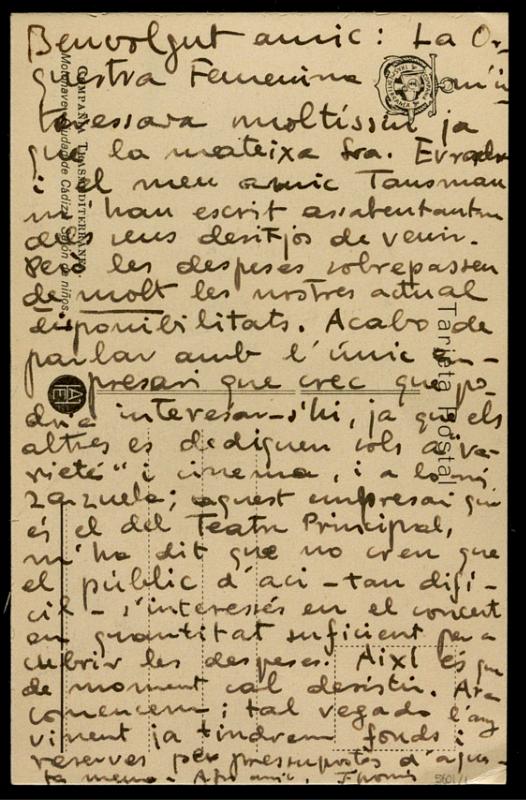 Benvolgut amic: La Or-
questra Femenina m'in-
teressava moltíssim ja
que la mateixa Sra. Evrard
i el meu amic Tansman
m'han escrit assabentantme
dels seus desitjos de venir.
Però les despeses sobrepassen
de molt les nostres actual
disponibilitats. Acabo de
parlar amb l'únic em-
presari que crec que po-
dria interesar-s'hi, ja que els
altres es dediquen sols a "va-
rietés" i cinema, i a
zarzuela; aquest empresari que
és el del Teatre Principal,
m'ha dit que no creu que
el públic d'aci - tan difí-
cil - s'interessés en el concert
en quantitat suficient per a
cubrir les despeses. Aixi és que
de moment cal desistir. Ara
comencem; tal vegada l'any
vinent ja tindrem fonds i
reserves per pressupostos d'aques-
ta mena. Aftm amic,
COMPAÑIA TRASMEDITERRANEA.
Motonave Ciudad de Cádiz. Salón de niños.
Tarjeta Postal